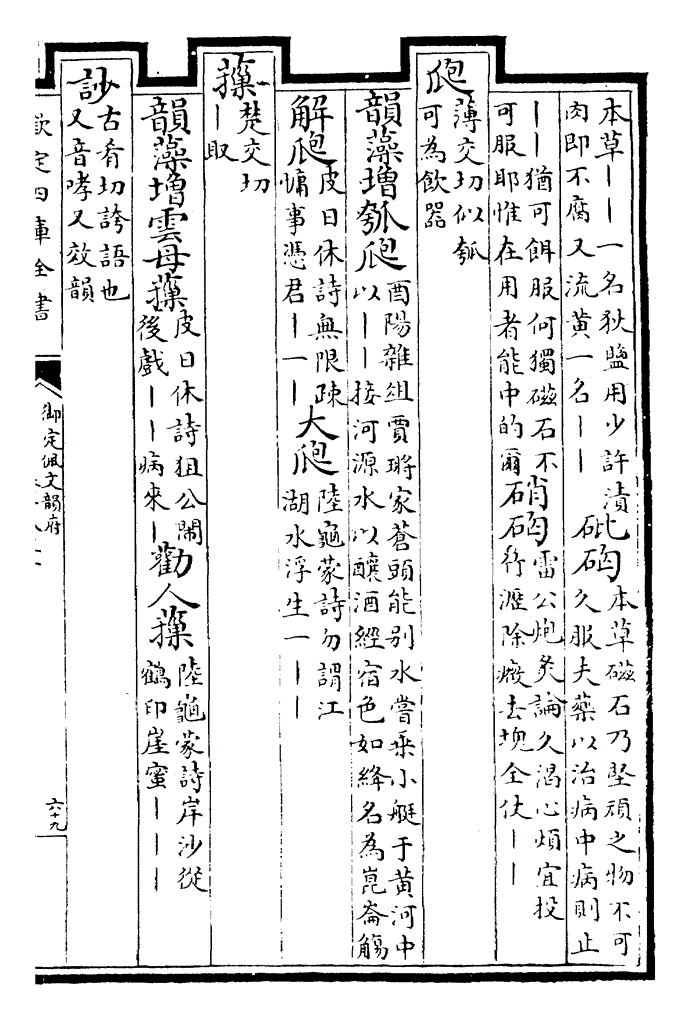 本草丨丨一名狄鹽用少許漬
肉即不腐又流黄一名丨丨
砒硇
本草磁石乃堅頑之物不可
久服夫藥以治病中病則止
丨丨猶可餌服何獨磁石不
可服耶惟在用者能中的爾
硝硇
雷公炮炙論久渴心煩宜投
竹瀝除癥去塊全仗丨丨
瓟
薄交切似瓠
可為飲器
韻藻增瓠瓟
酉陽雜組賈㻛家蒼頭能别水嘗乘小艇于黄河中
以丨丨接河源水以釀酒經宿色如絳名為崑崙觴
解瓟
皮日休詩無限疎
慵事憑君丨一丨
大瓟
陸龜蒙詩勿謂江
湖水浮生一丨丨
摷
楚交切
丨取
韻藻增雲母摷
皮日休詩狙公鬧
後戲丨丨病來丨
勸人摷
陸龜蒙詩岸沙從
鶴印崖蜜丨丨丨
訬
古肴切誇語也
又音哮又效韻
欽定四庫全書
御定佩文韻府
六十九